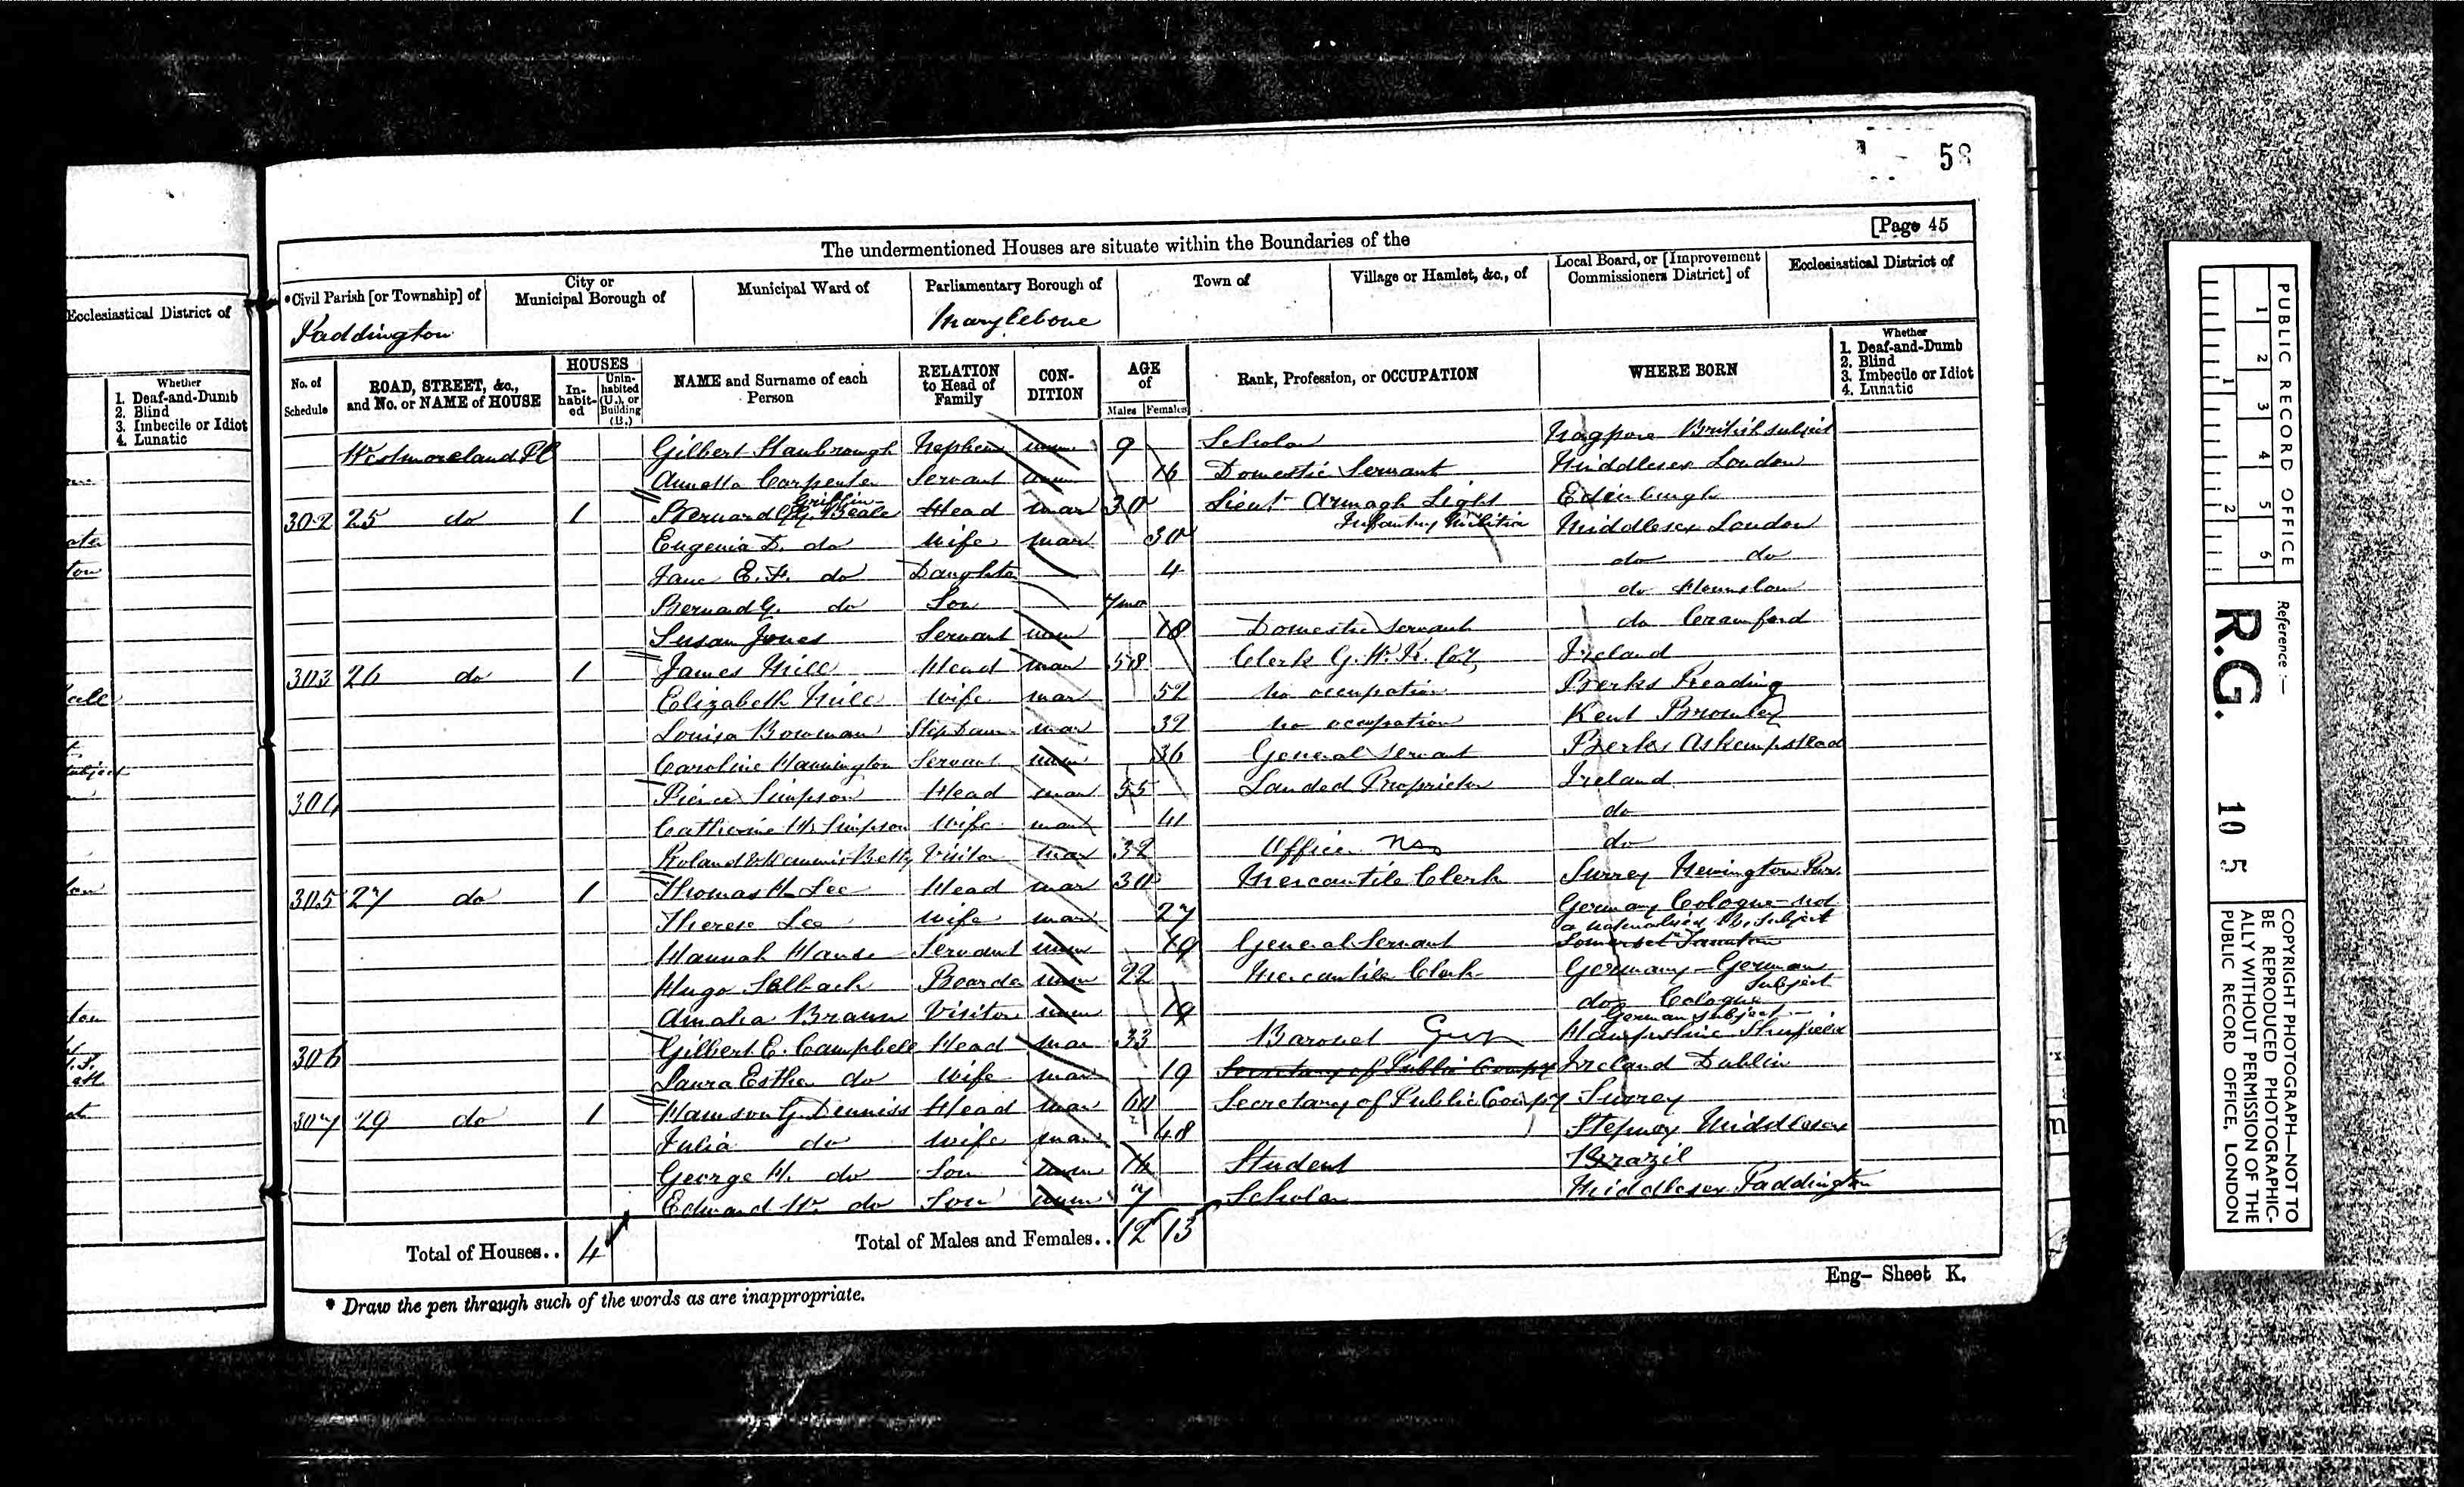 58
[Page 45
The undermentioned Houses are situate within the Boundaries of the
*Civil Parish [or Township] of
City or Municipal Borough of
Municipal Ward of
Parliamentary Borough of
Town of
Village or Hamlet, &c., of
Local Board, or [Improvement Commissioners District] of
Ecclesiastical District of
Paddington
Marylebone
No. of Schedule
ROAD, STREET, &c., and No. or NAME of HOUSE
HOUSES
In-habit-ed
Unin-habited (U.), or Building (B.)
NAME and Surname of each Person
RELATION to Head of Family
CON-DITION
AGE of
Males
Females
Rank, Profession, or OCCUPATION
WHERE BORN
Whether
1. Deaf-and-Dumb
2. Blind
3. Imbecile or Idiot
4. Lunatic
Westmoreland Pl Gilbert Nephew unm 9 Scholar Nagpore British subject
Annetta Carpenter Servant unm 16 Domestic Servant Middlesex London
302 25 do 1 Bernard G. Griffin Beale Head mar 30 Lieut Armagh Light Infantry Militia Edinburgh
Eugenia D. do Wife mar 30 Middlesex London
Jane E. F. do Daughter 4 do do
Bernard G. do Son 7mo do Hounslow
Susan Jones Servant unm 18 Domestic Servant do Cranford
303 26 do 1 James Mill Head mar 58 Clerk G. W. R. Coy Ireland
Elizabeth Mill Wife mar 52 no occupation Berks Reading
Louisa Bowman Step Daur mar 32 no occupation Kent Bromley
Caroline Hannington Servant unm 36 General Servant Berks
304 Pierce Simpson Head mar 55 Landed Proprietor Ireland
Catherine W. Simpson Wife mar 41 do
Roland Betty Visitor mar 32 Officer do
305 27 do 1 Thomas H. Lee Head mar 30 Mercantile Clerk Surrey Newington
Therese Lee Wife mar 27 Germany Cologne not a naturalised Br. Subject
Hannah Servant unm 19 General Servant Somerset Taunton
Hugo Boarder unm 22 Mercantile Clerk Germany - German Subject
Amalia Braun Visitor unm 19 do Cologne German Subject
306 Gilbert E. Campbell Head mar 33 Baronet Hampshire
Laura Esther do Wife mar 19 Secretary of Public Compy Ireland Dublin
307 29 do 1 G. Denniss Head mar 60 Secretary of Public Compy Surrey
Julia do Wife mar 48 Stepney Middlesex
George H. do Son unm 16 Student Brazil
Edward W. do Son unm 7 Scholar Middlesex Paddington
Total of Houses.. 4
Total of Males and Females.. 12 13
* Draw the pen through such of the words as are inappropriate.
Eng- Sheet K.
Ecclesiastical District of
Whether
1. Deaf-and-Dumb
2. Blind
3. Imbecile or Idiot
4. Lunatic
PUBLIC RECORD OFFICE
1 2 3 4 5 6
1 2
Reference:-
R.G. 10 5
COPYRIGHT PHOTOGRAPH—NOT TO
BE REPRODUCED PHOTOGRAPHIC-
ALLY WITHOUT PERMISSION OF THE
PUBLIC RECORD OFFICE, LONDON